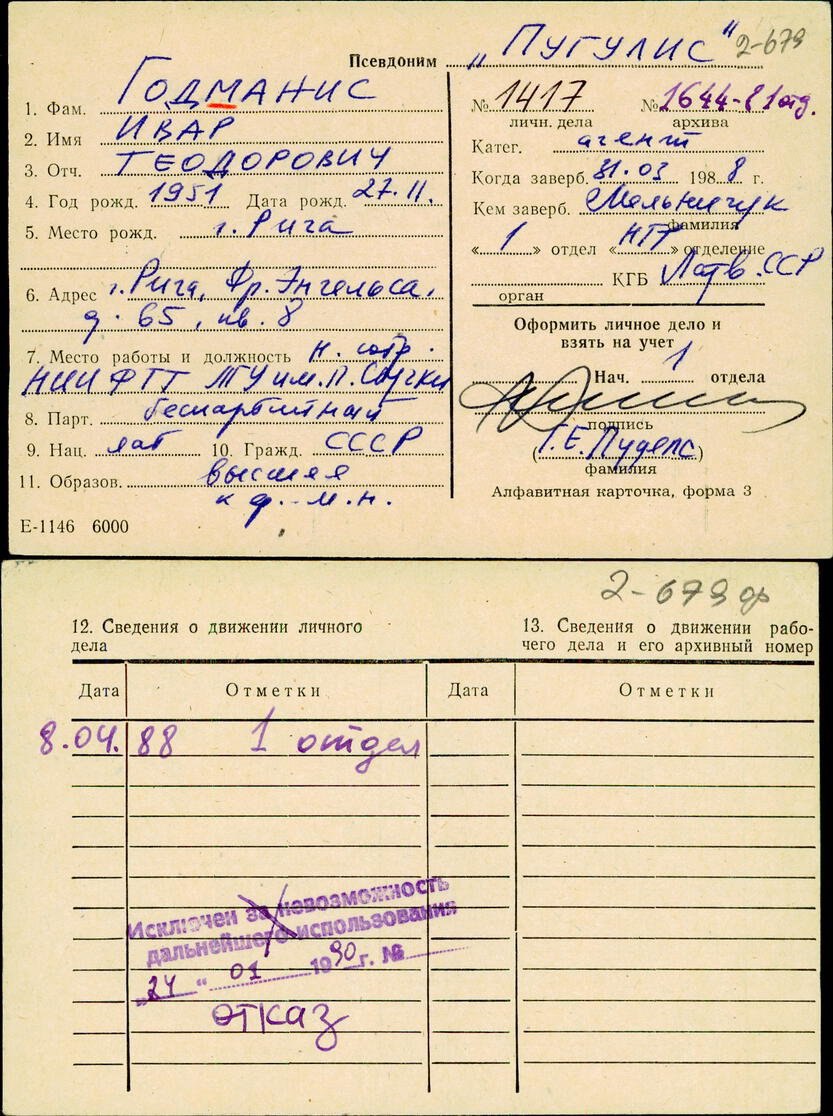 Псевдоним „Пугулис" 2-679
1. Фам. Годманис
2. Имя Ивар
3. Отч. Теодорович
4. Год рожд. 1951 Дата рожд. 27.11.
5. Место рожд. г. Рига
6. Адрес г. Рига, Фр. Энгельса,
д. 65, кв. 8
7. Место работы и должность н. сотр.
НИИ ФТТ ЛГУ им. П. Стучки
8. Парт. беспартийный
9. Нац. лат 10. Гражд. СССР
11. Образов. высшее
к. ф.-м.н.
Е-1146 6000
№ 1417 № 1644-81отд.
личн. дела архива
Катег. агент
Когда заверб. 31.03 1988 г.
Кем заверб. Мельничук
фамилия
«1» отдел «НТР» отделение
КГБ Латв. ССР
орган
Оформить личное дело и
взять на учет
Нач. 1 отдела
подпись
(Г.Е. Пуделс)
фамилия
Алфавитная карточка, форма 3
2-679 ор
12. Сведения о движении личного
дела
13. Сведения о движении рабо-
чего дела и его архивный номер
Дата Отметки Дата Отметки
8.04. 88 1 отдел
Исключен за невозможность
дальнейшего использования
„24" 01 1990 г. №
отказ